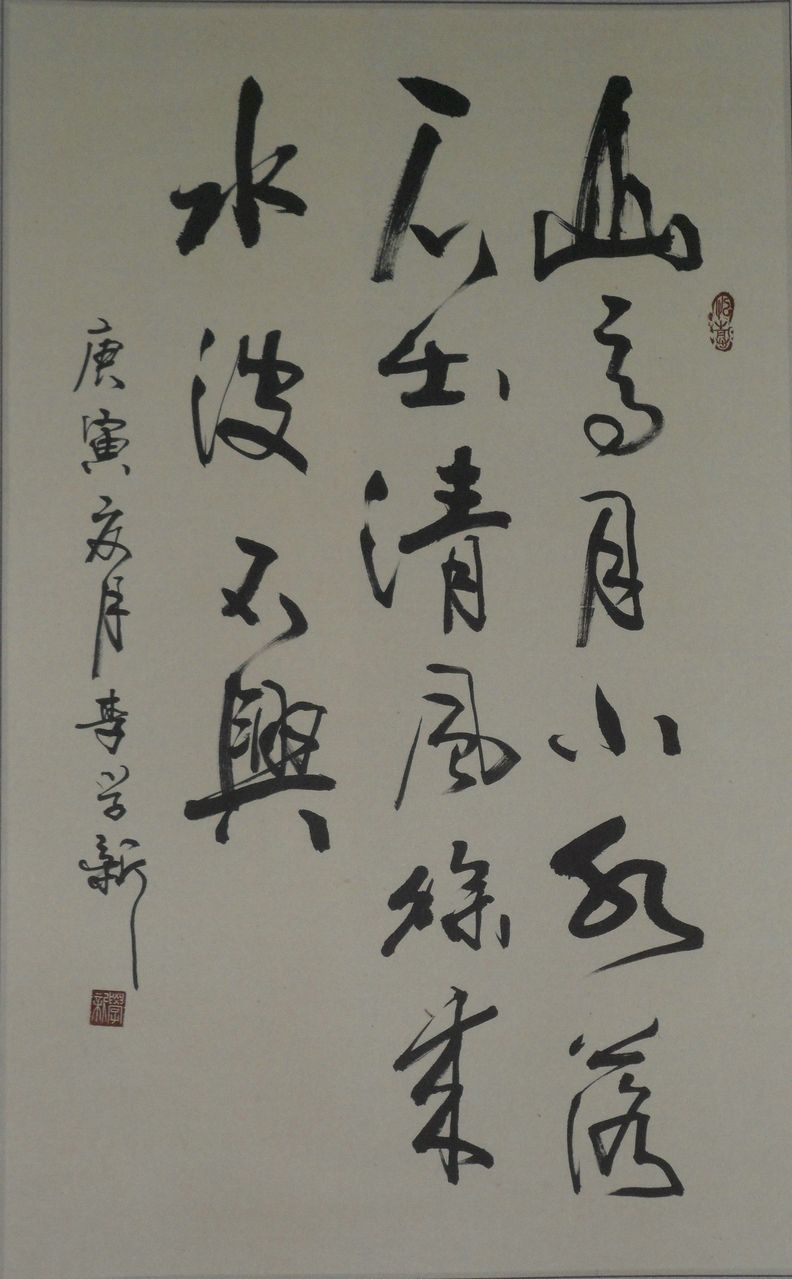 山高月小水落
石出清风徐来
水波不興
庚寅夏月李学新
學新